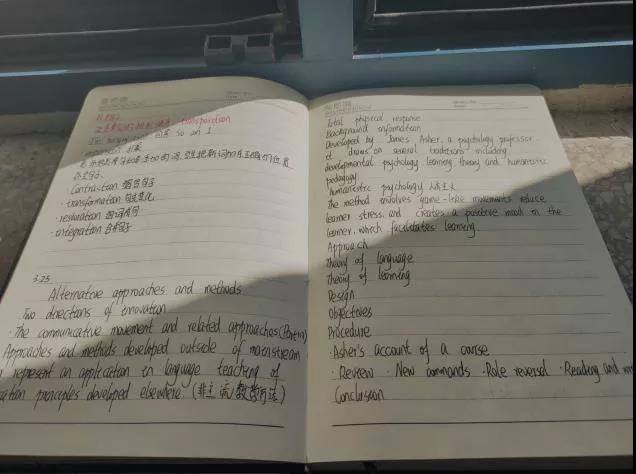 transposition
I'm hungry. so am I
Contraction 缩售句子
·transformation 句式变化
·restoration
·integration 合并句子
3.25
Alternative approaches and methods
Two directions of innovation
·The communicative movement and related approaches (Part III)
Approaches and methods developed outside of mainstream
represent an application in language teaching of
principles developed elsewhere. (非主流教学方法)
Total physical response
Background information
Developed by James Asher, a psychology professor
it draws on several traditions including
developmental psychology, learning theory and humanistic
pedagogy.
humanistic psychology 人本主义
The method involves game-like movements reduce
learner stress, and creates a positive mood in the
learner, which facilitates learning.
Approach
Theory of language
Theory of learning
Design
Objectives
Procedure
·Asher's account of a course
·Review ·New commands ·Role reversal ·Reading and
Conclusion